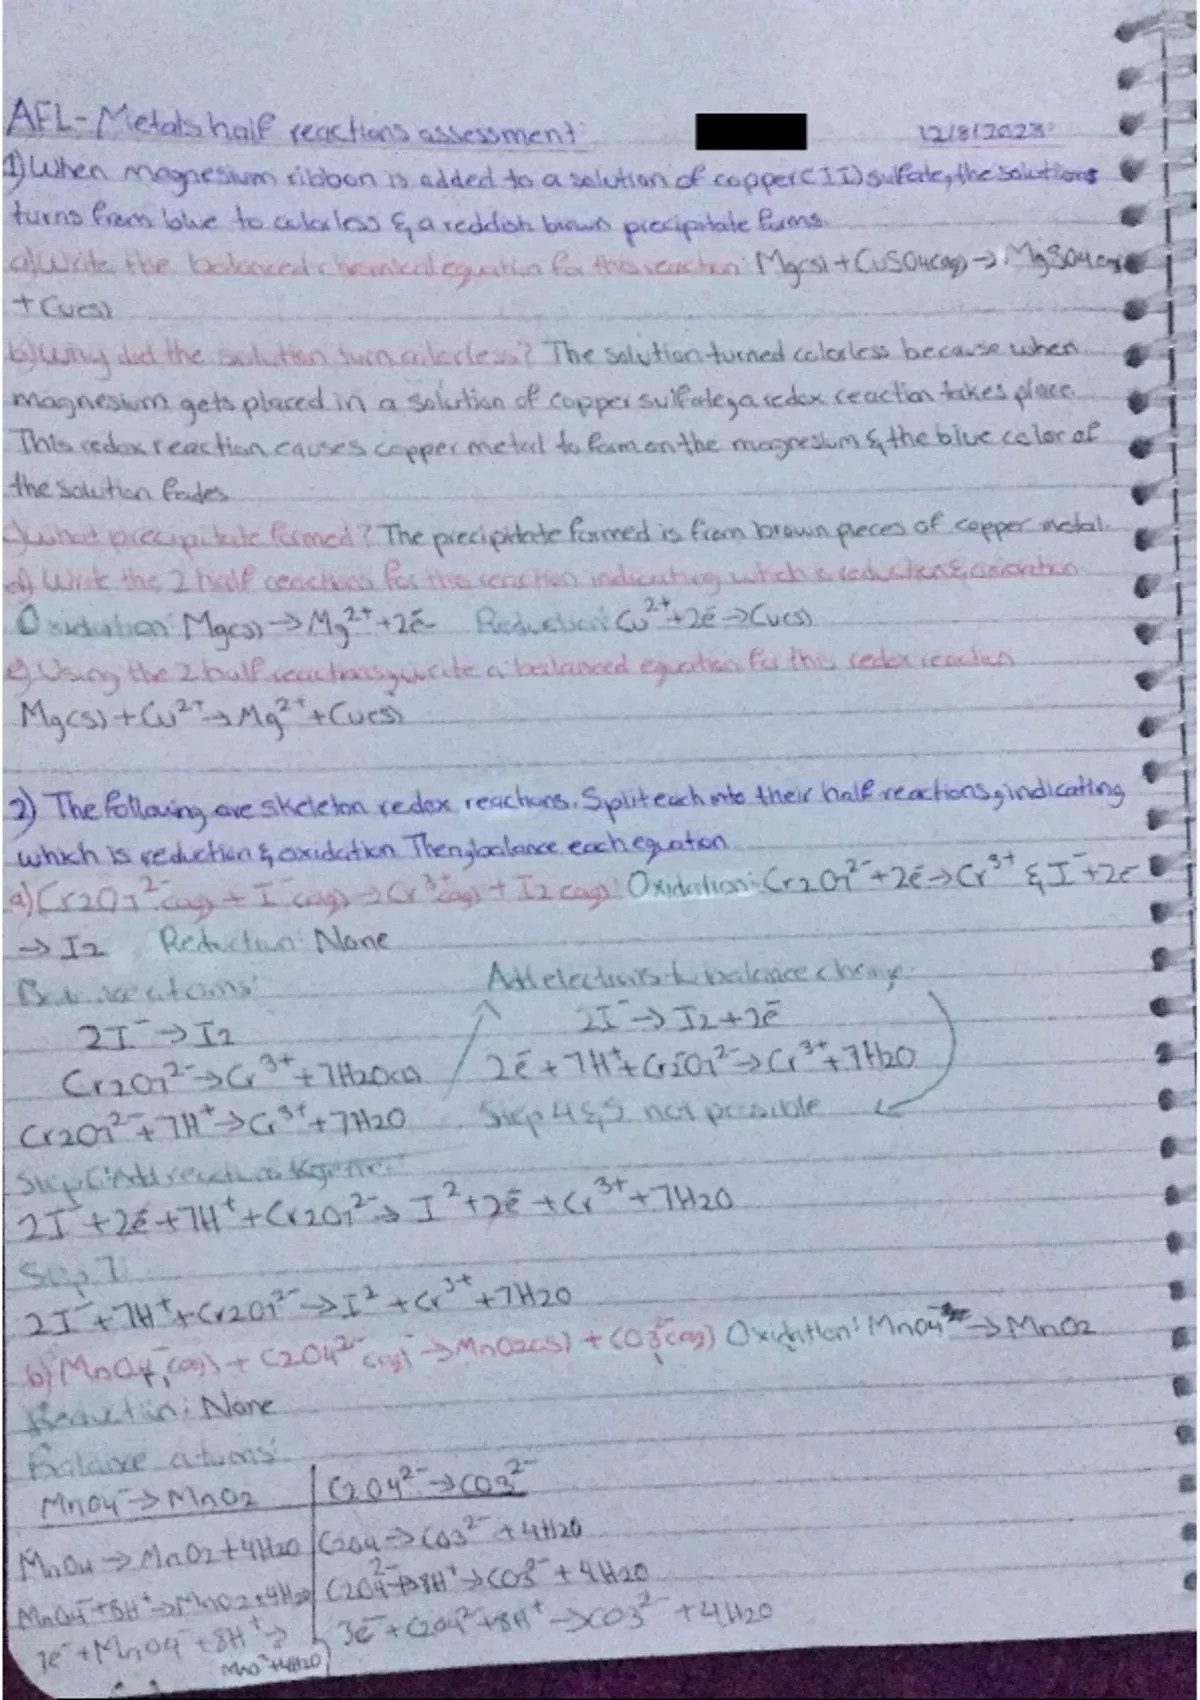 AFL-Metals half reactions assessment: 12/8/2023
1) When magnesium ribbon is added to a solution of copper(II) sulfate, the solutions
turns from blue to colorless & a reddish brown precipitate forms.
a) Write the balanced chemical equation for this reaction: Mg(s) + CuSO4(aq) → MgSO4(aq)
+ Cu(s)
b) Why did the solution turn colorless? The solution turned colorless because when
magnesium gets placed in a solution of copper sulfate, a redox reaction takes place.
This redox reaction causes copper metal to form on the magnesium & the blue color of
the solution fades
c) What precipitate formed? The precipitate formed is from brown pieces of copper metal.
d) Write the 2 half reactions for the reaction indicating which is reduction & oxidation
Oxidation: Mg(s) → Mg²⁺ + 2e⁻ Reduction: Cu²⁺ + 2e⁻ → Cu(s)
e) Using the 2 half reactions, write a balanced equation for this redox reaction
Mg(s) + Cu²⁺ → Mg²⁺ + Cu(s)
2) The following are skeleton redox reactions. Split each into their half reactions, indicating
which is reduction & oxidation. Then, balance each equation
a) Cr2O7²⁻(aq) + I⁻(aq) → Cr³⁺(aq) + I2(aq): Oxidation: Cr2O7²⁻ + 2e⁻ → Cr³⁺ & I⁻ + 2e⁻
→ I2 Reduction: None
Balance atoms: Add electrons to balance charge:
2I⁻ → I2 2I⁻ → I2 + 2e⁻
Cr2O7²⁻ → Cr³⁺ + 7H2O(l) 2e⁻ + 7H⁺ + Cr2O7²⁻ → Cr³⁺ + 7H2O
Cr2O7²⁻ + 7H⁺ → Cr³⁺ + 7H2O Step 4 & 5 not possible
Step 6: Add reactions together:
2I⁻ + 2e⁻ + 7H⁺ + Cr2O7²⁻ → I² + 2e⁻ + Cr³⁺ + 7H2O
Step 7:
2I⁻ + 7H⁺ + Cr2O7²⁻ → I² + Cr³⁺ + 7H2O
b) MnO4⁻(aq) + C2O4²⁻(aq) → MnO2(s) + CO3²⁻(aq) Oxidation: MnO4⁻ → MnO2
Reduction: None
Balance atoms:
MnO4⁻ → MnO2 C2O4²⁻ → CO3²⁻
MnO4 → MnO2 + 4H2O C2O4 → CO3²⁻ + 4H2O
MnO4⁻ + 8H⁺ → MnO2 + 4H2O C2O4²⁻ + 8H⁺ → CO3²⁻ + 4H2O
7e⁻ + MnO4⁻ + 8H⁺ → 3e⁻ + C2O4²⁻ + 8H⁺ → CO3²⁻ + 4H2O